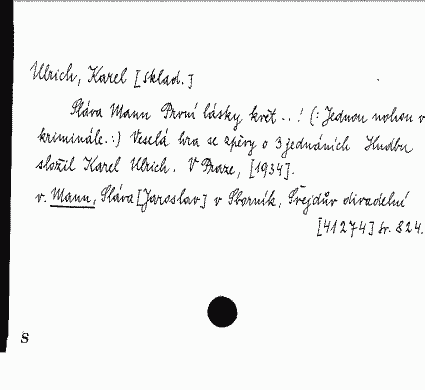 Ulrich, Karel [sklad.]
Sláva Mann První lásky květ...! (: Jednou nohou v
kriminále.:) Veselá hra se zpěvy o 3 jednáních Hudbu
složil Karel Ulrich. V Praze, [1934].
v. Mann, Sláva [Jaroslav] v Sborník, Švejdův divadelní
[41274] sv. 824.
S